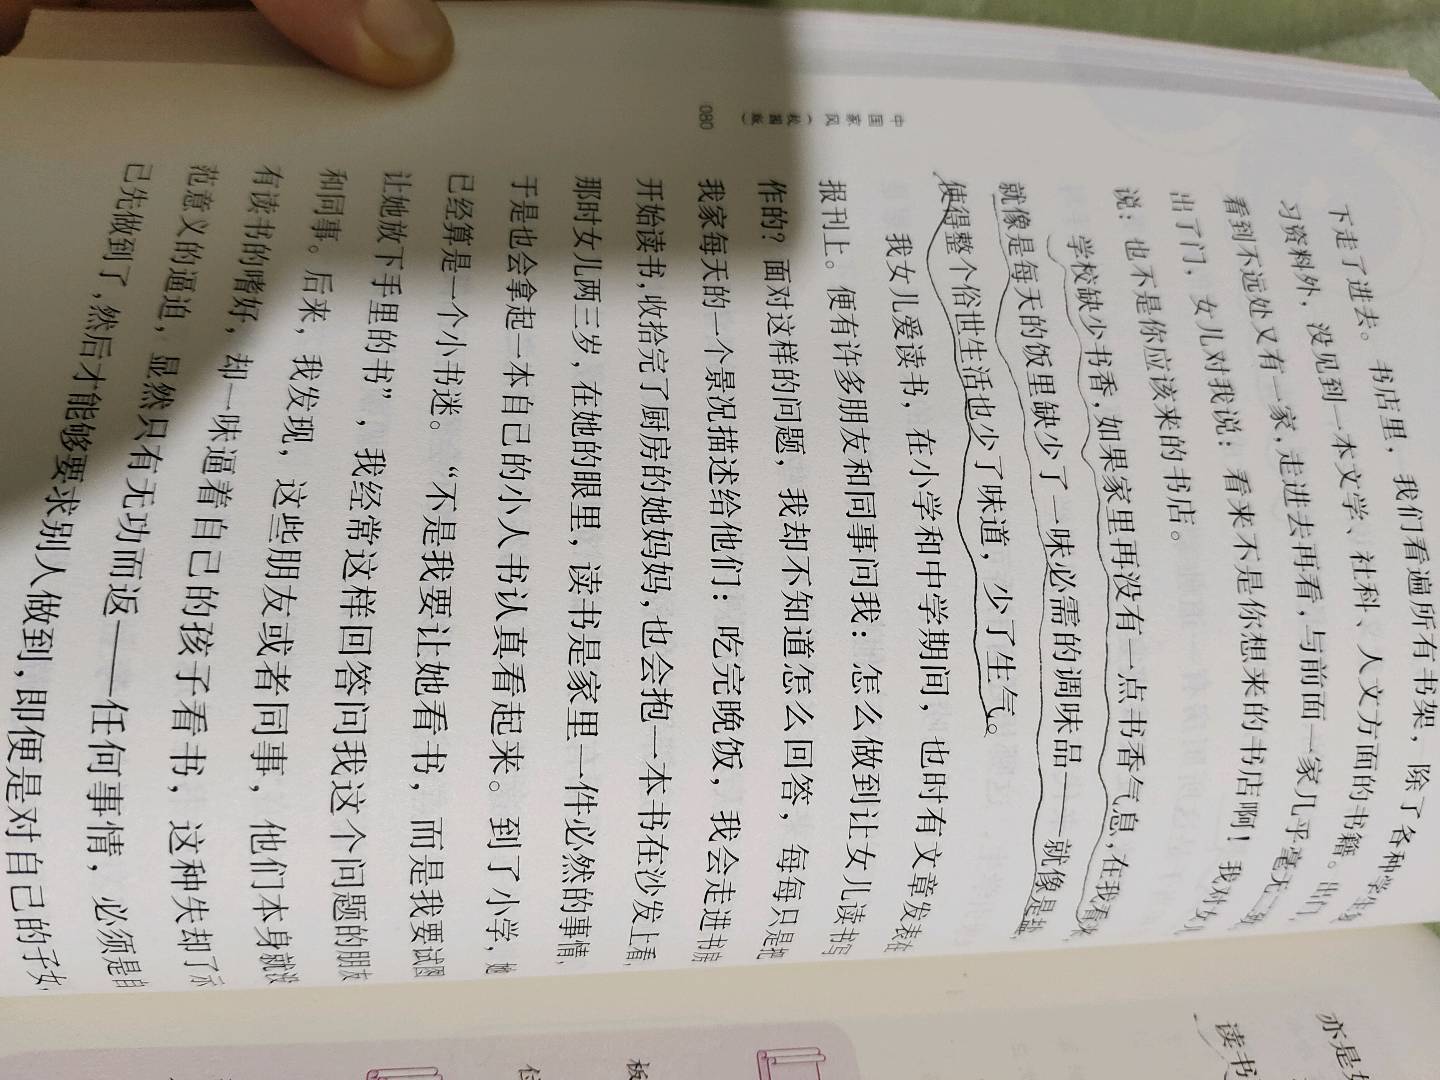 080
中国家风（校园版）
下走了进去。书店里，我们看遍所有书架，除了各种学生复
习资料外，没见到一本文学、社科、人文方面的书籍。出门，
看到不远处又有一家，走进去再看，与前面一家几乎毫无二致，
出了门，女儿对我说：看来不是你想来的书店啊！我对女儿
说：也不是你应该来的书店。
学校缺少书香，如果家里再没有一点书香气息，在我看来，
就像是每天的饭里缺少了一味必需的调味品——就像是盐，
使得整个俗世生活也少了味道，少了生气。
我女儿爱读书，在小学和中学期间，也时有文章发表在
报刊上。便有许多朋友和同事问我：怎么做到让女儿读书写
作的？面对这样的问题，我却不知道怎么回答，每每只是把
我家每天的一个景况描述给他们：吃完晚饭，我会走进书房
开始读书，收拾完了厨房的她妈妈，也会抱一本书在沙发上看，
那时女儿两三岁，在她的眼里，读书是家里一件必然的事情，
于是也会拿起一本自己的小人书认真看起来。到了小学，她
已经算是一个小书迷。“不是我要让她看书，而是我要试图
让她放下手里的书”，我经常这样回答问我这个问题的朋友
和同事。后来，我发现，这些朋友或者同事，他们本身就没
有读书的嗜好，却一味逼着自己的孩子看书，这种失却了示
范意义的逼迫，显然只有无功而返——任何事情，必须是自
己先做到了，然后才能够要求别人做到，即便是对自己的子女，
亦是如
读书
板
位